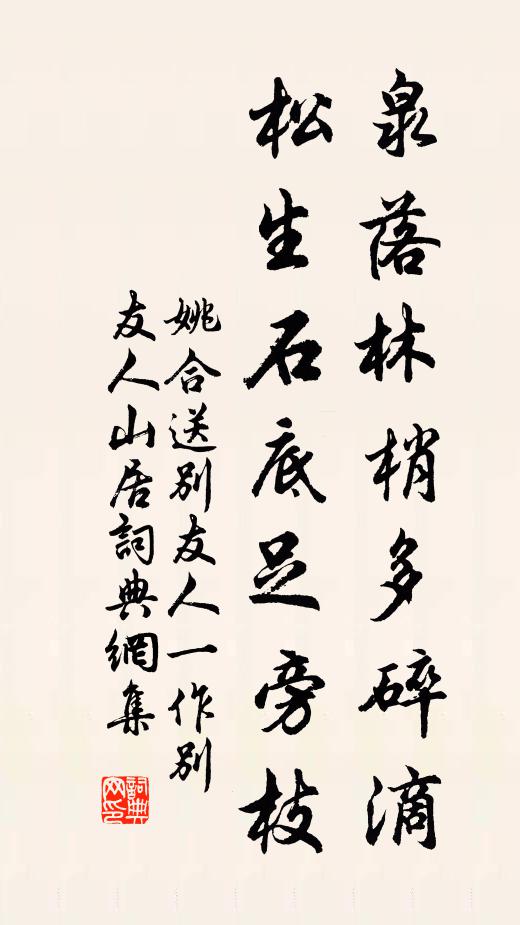 泉落林梢多碎滴
松生石底足旁枝
姚合送別友人一作別
友人山居詞典網集
詞典網印